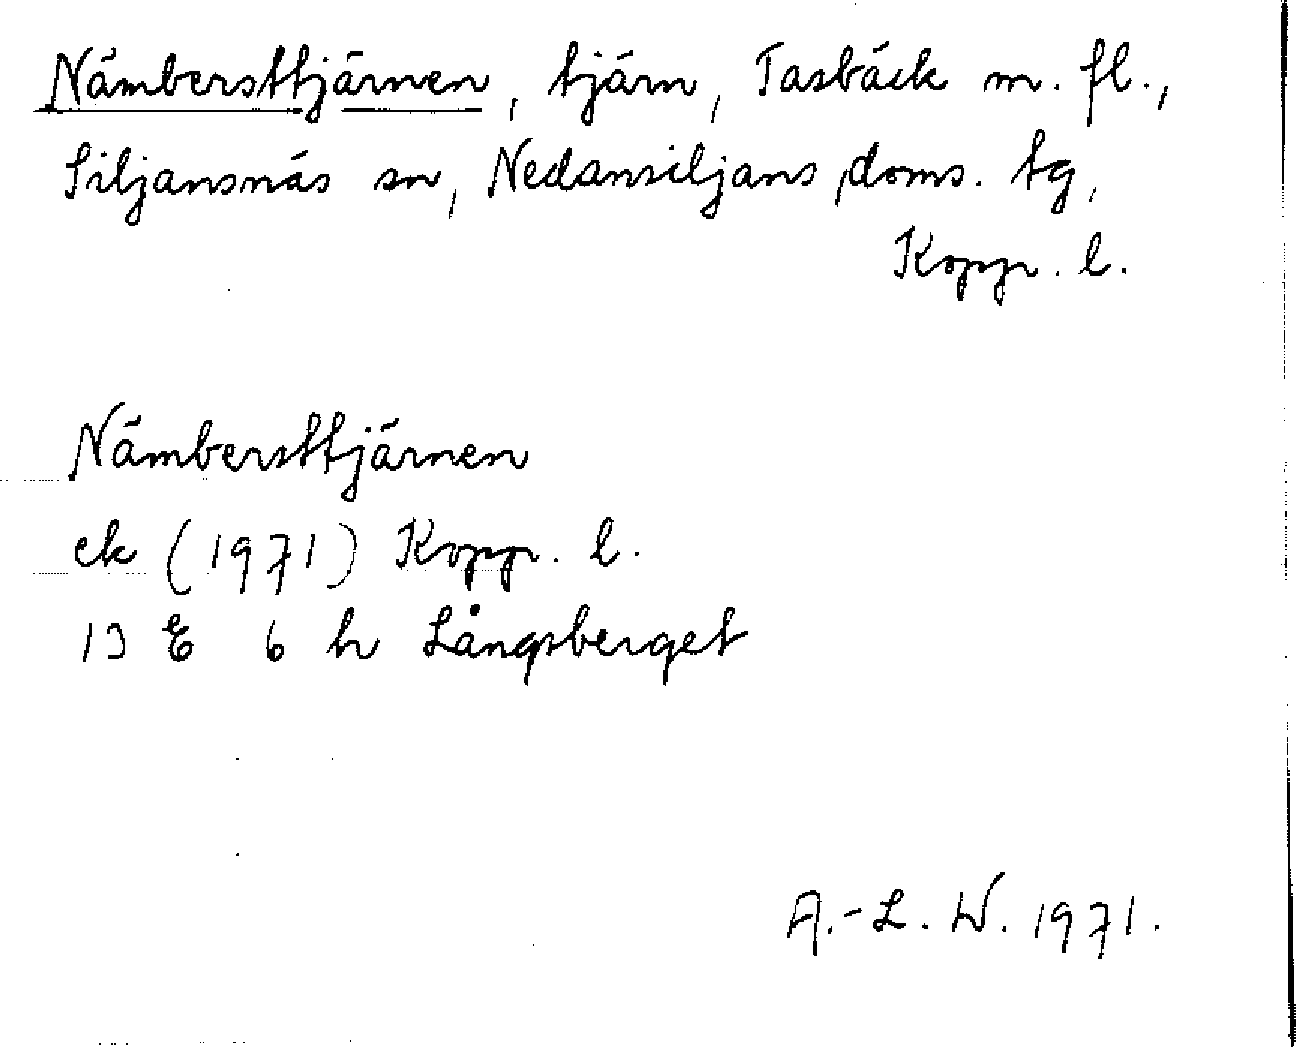 Nämbersttjärnen, tjärn, Tasbäck m. fl.,
Siljansnäs sn, Nedansiljans doms. tg,
Kopp. l.
Nämbersttjärnen
ek (1971) Kopp. l.
13 E 6 h Långsberget
A.-L. W. 1971.